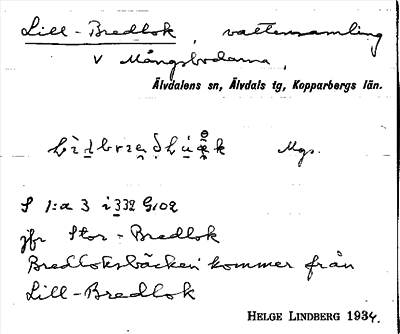 Lill-Bredlok, vattensamling
V Mångsbodarna,
Älvdalens sn, Älvdals tg, Kopparbergs län.
Mgs.
S 1:a 3 i 332 G:02
jfr Stor-Bredlok
Bredloksbäcken kommer från
Lill-Bredlok
HELGE LINDBERG 1934.